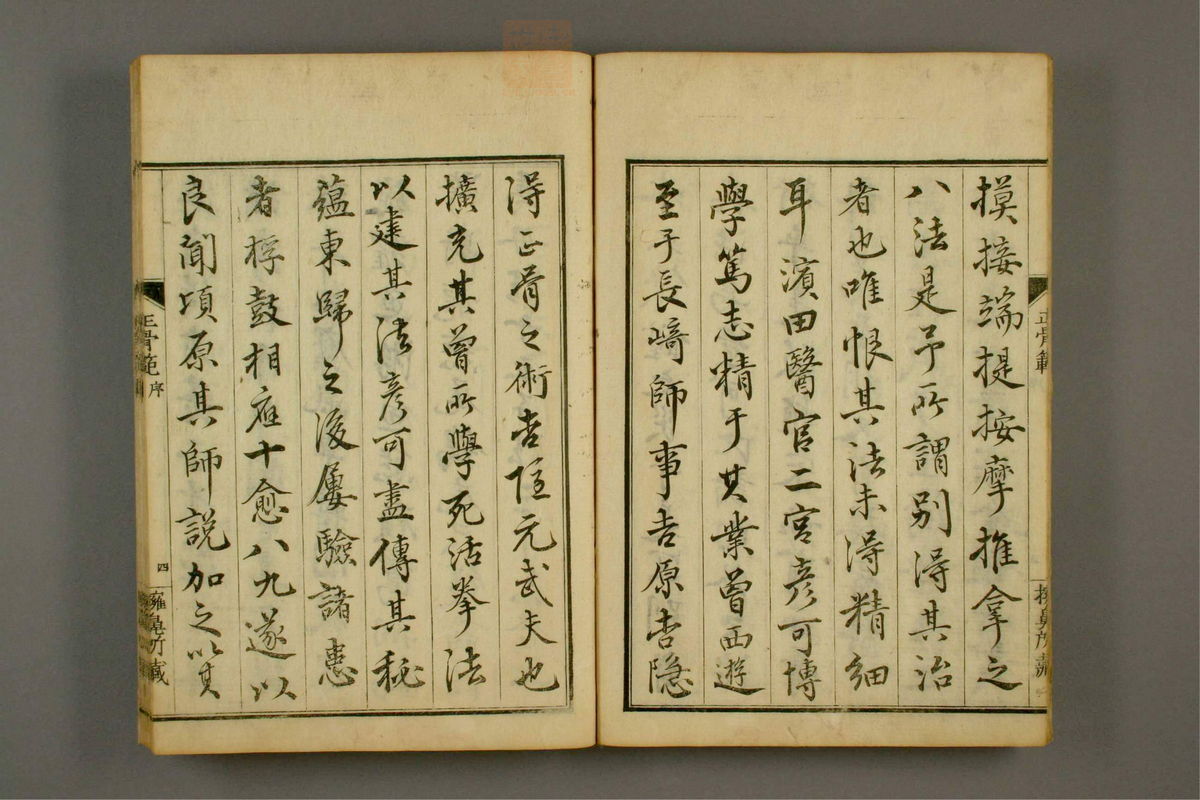 摸接端提按摩推拿之
八法是予所謂別得其治
者也唯恨其法未得精細
耳濱田醫官二宮彦可博
學篤志精于其業曽西遊
至于長﨑師事吉原杏隐
得正骨之術杏隂元武夫也
擴充其曽所學死活拳法
以建其法彦可盡傳其秘
蕴東歸之後屢驗諸患
者桴鼓相應十愈八九遂以
良聞頃原其師說加之以其
正骨範
正骨範 序
四
擁鼻所藏